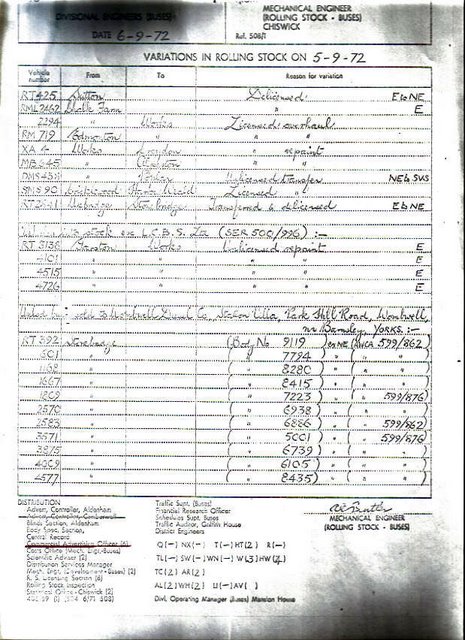 DIVISIONAL ENGINEERS (BUSES)
DATE 6-9-72
MECHANICAL ENGINEER
(ROLLING STOCK - BUSES)
CHISWICK
Ref. 508/1
VARIATIONS IN ROLLING STOCK ON 5-9-72
Vehicle number From To Reason for variation
RT 425 Sutton Delicensed E to NE
RML 2462 Chalk Farm " E
2394 " Works Licensed overhaul
RM 719 Edmonton " " "
XA 4 Works Croydon " repaint
MB 645 " "
DMS 438 " Unlicensed transfer NE to SUS
SMS 90 Cricklewood Licensed "
RT Uxbridge Stonebridge Transferred & delicensed E to NE
stock ex L.C.B.S. Ltd (SER 500/996) :-
RT 3138 Garston Works Unlicensed repaint E
4101 " " " " E
4515 " " " " E
4726 " " " " E
sold to Wombwell Diesel Co, Station Villa, Park Hill Road, Wombwell,
nr Barnsley, YORKS. :-
RT 392 Stonebridge (Body No 9119) ex NE (AWCA 599/862)
601 " ( " 7794 ) " ( " " )
1168 " ( " 8280 ) " ( " " )
1667 " ( " 8415 ) " ( " " )
1809 " ( " 7223 ) " ( " 599/876)
2570 " ( " 6938 ) " ( " " )
2583 " ( " 6886 ) " ( " 599/862)
3571 " ( " 5001 ) " ( " 599/876)
3875 " ( " 6739 ) " ( " " )
4009 " ( " 6105 ) " ( " " )
4577 " ( " 8435 ) " ( " " )
DISTRIBUTION
Advert. Controller, Aldenham
Advert. Controller, Camberwell
Blinds Section, Aldenham
Body Spec. Section,
Central Record
Commercial Advertising Officer (6)
Costs Office (Mech. Engr.-Buses)
Scientific Adviser (2)
Distribution Services Manager
Mech. Engr. (Development-Buses) (2)
R. S. Licensing Section (6)
Rolling Stock Inspection
Statistical Office - Chiswick (2)
Traffic Supt. (Buses)
Financial Research Officer
Schedules Supt. Buses
Traffic Auditor, Griffith House
District Engineers
Q(-) NX(-) T(-) HT(2) R(-)
TL(-) SW(-) WN(-) WL3 HW(2)
TC(2) AR(2)
AL(2) WH(2) U(-) AV( )
Divl. Operating Manager (Buses) Mansion House
MECHANICAL ENGINEER
(ROLLING STOCK - BUSES)